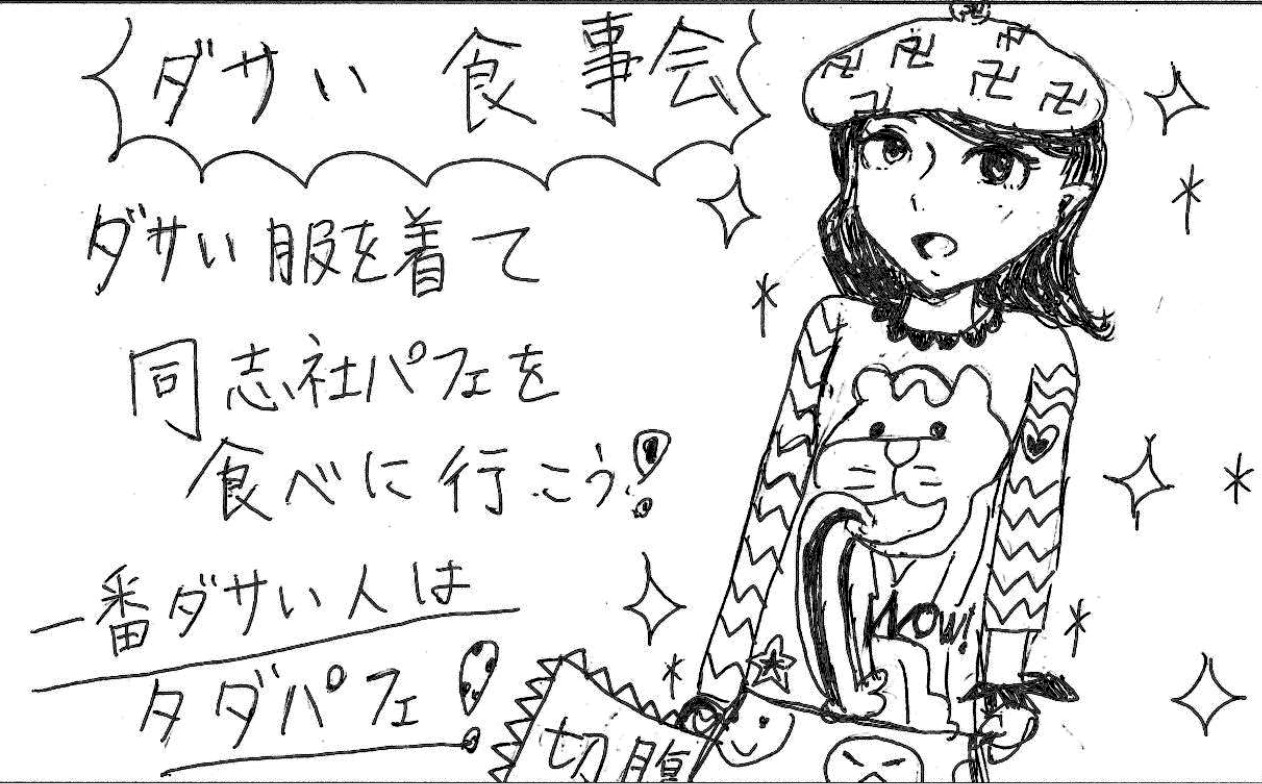 ダサい 食事会
ダサい服を着て
同志社パフェを
食べに行こう!
一番ダサい人は
タダパフェ!
卍 卍 卍 卍 卍 卍
WOW!
切腹